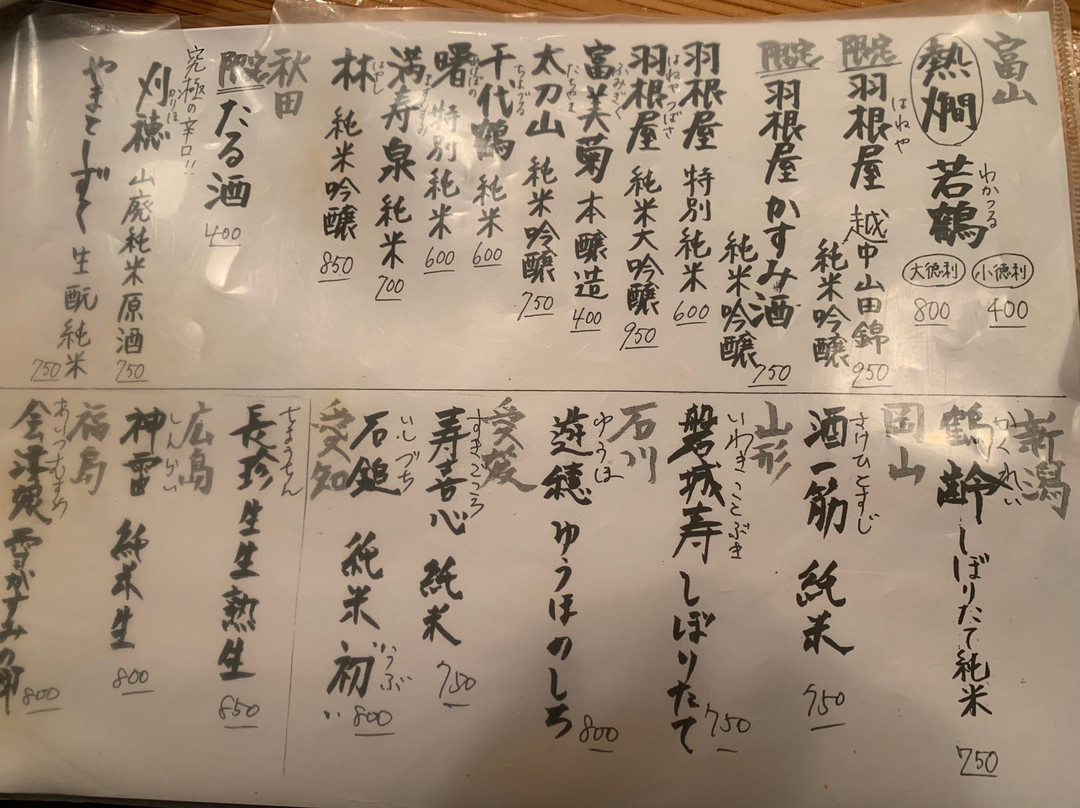 富山
熱燗 若鶴 わかつる
小徳利 400
大徳利 800
限定 羽根屋 はねや 越中山田錦 純米吟醸 950
限定 羽根屋 かすみ酒 純米吟醸 750
羽根屋 特別純米 600
羽根屋 はねやつばさ 純米大吟醸 950
富美菊 ふみぎく 本醸造 400
太刀山 たちやま 純米吟醸 750
千代鶴 ちよづる 純米 600
曙 あけぼの 特別純米 600
満寿泉 ますいずみ 純米 700
林 はやし 純米吟醸 850
秋田
限定 たる酒 400
究極の辛口!!
刈穂 かりほ 山廃純米原酒 750
やまとしずく 生酛純米 750
新潟
鶴齢 かくれい しぼりたて純米 750
岡山
酒一筋 さけひとすじ 純米 750
山形
磐城寿 いわきことぶき しぼりたて 750
石川
遊穂 ゆうほ ゆうほのしろ 800
愛媛
寿喜心 すきごころ 純米 750
石鎚 いしづち 純米 初 800
愛知
長珍 ちょうちん 生生熟生 850
広島
神雷 しんらい 純米生 800
福島
会津娘 あいづむすめ 雪がすみの郷 800